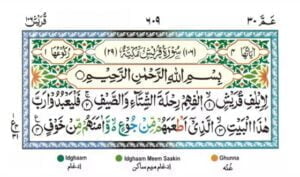 عَمَّ ٣٠ ٦٠٩ قُرَيْش ١٠٦
اٰيَاتُهَا ٤ (١٠٦) سُوْرَةُ قُرَيْشٍ مَكِّيَّةٌ (٢٩) رُكُوْعُهَا ١
بِسْمِ اللّٰهِ الرَّحْمٰنِ الرَّحِيْمِ
لِاِيْلٰفِ قُرَيْشٍ ۝١ اٖلٰفِهِمْ رِحْلَةَ الشِّتَآءِ وَالصَّيْفِ ۝٢ فَلْيَعْبُدُوْا رَبَّ
هٰذَا الْبَيْتِ ۝٣ الَّذِيْٓ اَطْعَمَهُمْ مِّنْ جُوْعٍ وَّاٰمَنَهُمْ مِّنْ خَوْفٍ ۝٤
Idghaam Idghaam Meem Saakin Ghunna
ادغام ادغام میم ساکن غنّہ